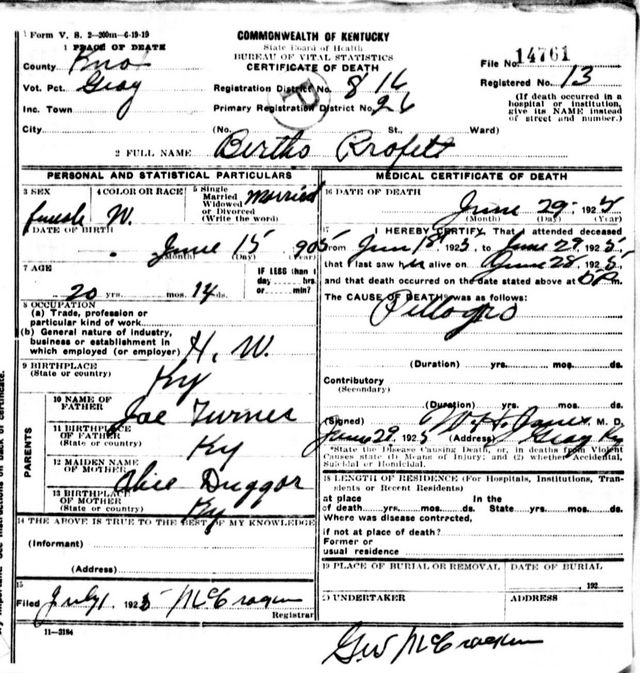 Form V. S. 2-200m-6-19-19
1 PLACE OF DEATH
COMMONWEALTH OF KENTUCKY
State Board of Health
BUREAU OF VITAL STATISTICS
CERTIFICATE OF DEATH
County Knox
File No. 14761
Vot. Pct. Gray
Registration District No. 816
Registered No. 13
Inc. Town
Primary Registration District No. 26
(If death occurred in a hospital or institution, give its NAME instead of street and number.)
City
(No. St., Ward)
2 FULL NAME Bertha Profett
PERSONAL AND STATISTICAL PARTICULARS
3 SEX female
4 COLOR OR RACE W.
5 Single Married Widowed or Divorced (Write the word) Married
DATE OF BIRTH
June 15 1905
(Month) (Day) (Year)
7 AGE
20 yrs. mos. 14 ds.
IF LESS than 1 day hrs. or min.?
8 OCCUPATION
(a) Trade, profession or particular kind of work
(b) General nature of industry, business or establishment in which employed (or employer) H. W.
9 BIRTHPLACE
(State or country) Ky
PARENTS
10 NAME OF FATHER Joe Turner
11 BIRTHPLACE OF FATHER
(State or country) Ky
12 MAIDEN NAME OF MOTHER Alice Duggar
13 BIRTHPLACE OF MOTHER
(State or country) Ky
14 THE ABOVE IS TRUE TO THE BEST OF MY KNOWLEDGE
(Informant)
(Address)
15
Filed July 1, 1925 McCracken
Registrar
11-3184
MEDICAL CERTIFICATE OF DEATH
16 DATE OF DEATH
June 29, 1925
(Month) (Day) (Year)
17 I HEREBY CERTIFY, That I attended deceased
from Jun 18, 1925, to June 29, 1925,
that I last saw her alive on June 28, 1925,
and that death occurred on the date stated above at m.
The CAUSE OF DEATH was as follows:
Pellagra
(Duration) yrs. mos. ds.
Contributory
(Secondary)
(Duration) yrs. mos. ds.
(Signed) M. D.
June 29, 1925 (Address) Gray Ky
*State the Disease Causing Death, or, in deaths from Violent
Causes state (1) Means of Injury; and (2) whether Accidental,
Suicidal or Homicidal.
18 LENGTH OF RESIDENCE (For Hospitals, Institutions, Transients or Recent Residents)
at place of death yrs. mos. ds. In the State yrs. mos. ds.
Where was disease contrected,
if not at place of death?
Former or usual residence
19 PLACE OF BURIAL OR REMOVAL
DATE OF BURIAL
192
20 UNDERTAKER
ADDRESS
Geo McCracken